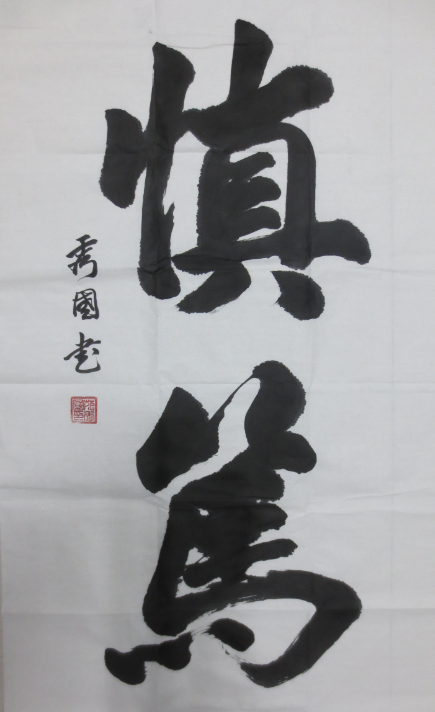 慎篤
秀國书